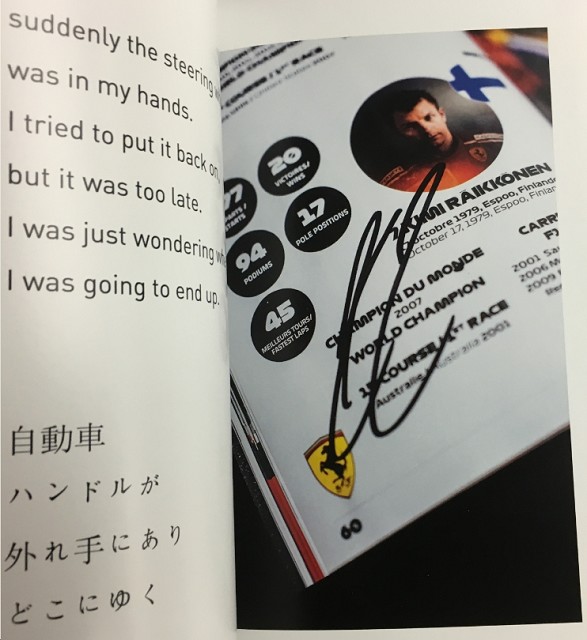 suddenly the steering
was in my hands.
I tried to put it back on,
but it was too late.
I was just wondering
I was going to end up.
自動車
ハンドルが
外れ手にあり
どこにゆく
COURSE / 1ST RACE
20
VICTOIRES/
WINS
STARTS
17
POLE POSITIONS
94
PODIUMS
45
MEILLEURS TOURS/
FASTEST LAPS
KIMI RÄIKKÖNEN
octobre 1979, Espoo, Finlande
October 17, 1979, Espoo,
CHAMPION DU MONDE
2007
WORLD CHAMPION
1E COURSE / 1ST RACE
Australie / Australia 2001
2001
2006
2009
60